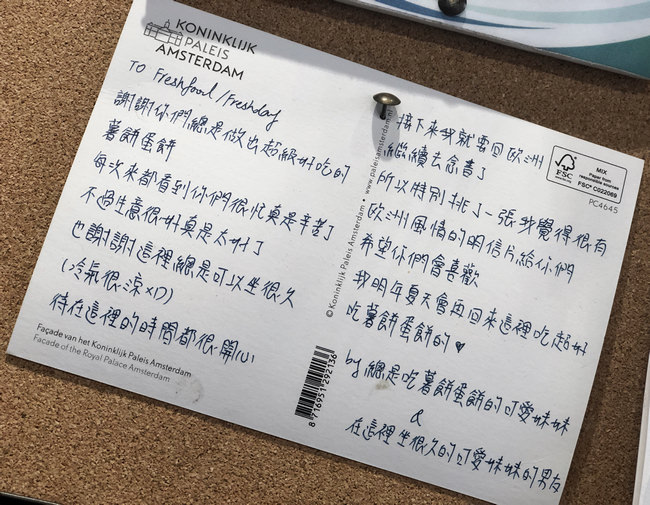 KONINKLIJK
PALEIS
AMSTERDAM
TO Freshfood/Freshday
謝謝你們總是做出超級好吃的
薯餅蛋餅
每次來都看到你們很忙真是辛苦了
不過生意很好真是太好了
也謝謝這裡總是可以坐很久
(冷氣很涼XD)
待在這裡的時間都很開心
Façade van het Koninklijk Paleis Amsterdam
Facade of the Royal Palace Amsterdam
© Koninklijk Paleis Amsterdam • www.paleisamsterdam.nl
8 716951 262136
接下來我就要回歐洲
繼續去念書了
所以特別挑了一張我覺得很有
歐洲風情的明信片給你們
希望你們會喜歡
我明年夏天會再回來這裡吃超好
吃薯餅蛋餅的♥
by 總是吃薯餅蛋餅的可愛妹妹
&
在這裡坐很久的可愛妹妹的男友
FSC
MIX
Paper from
responsible sources
FSC® C022069
PC4645